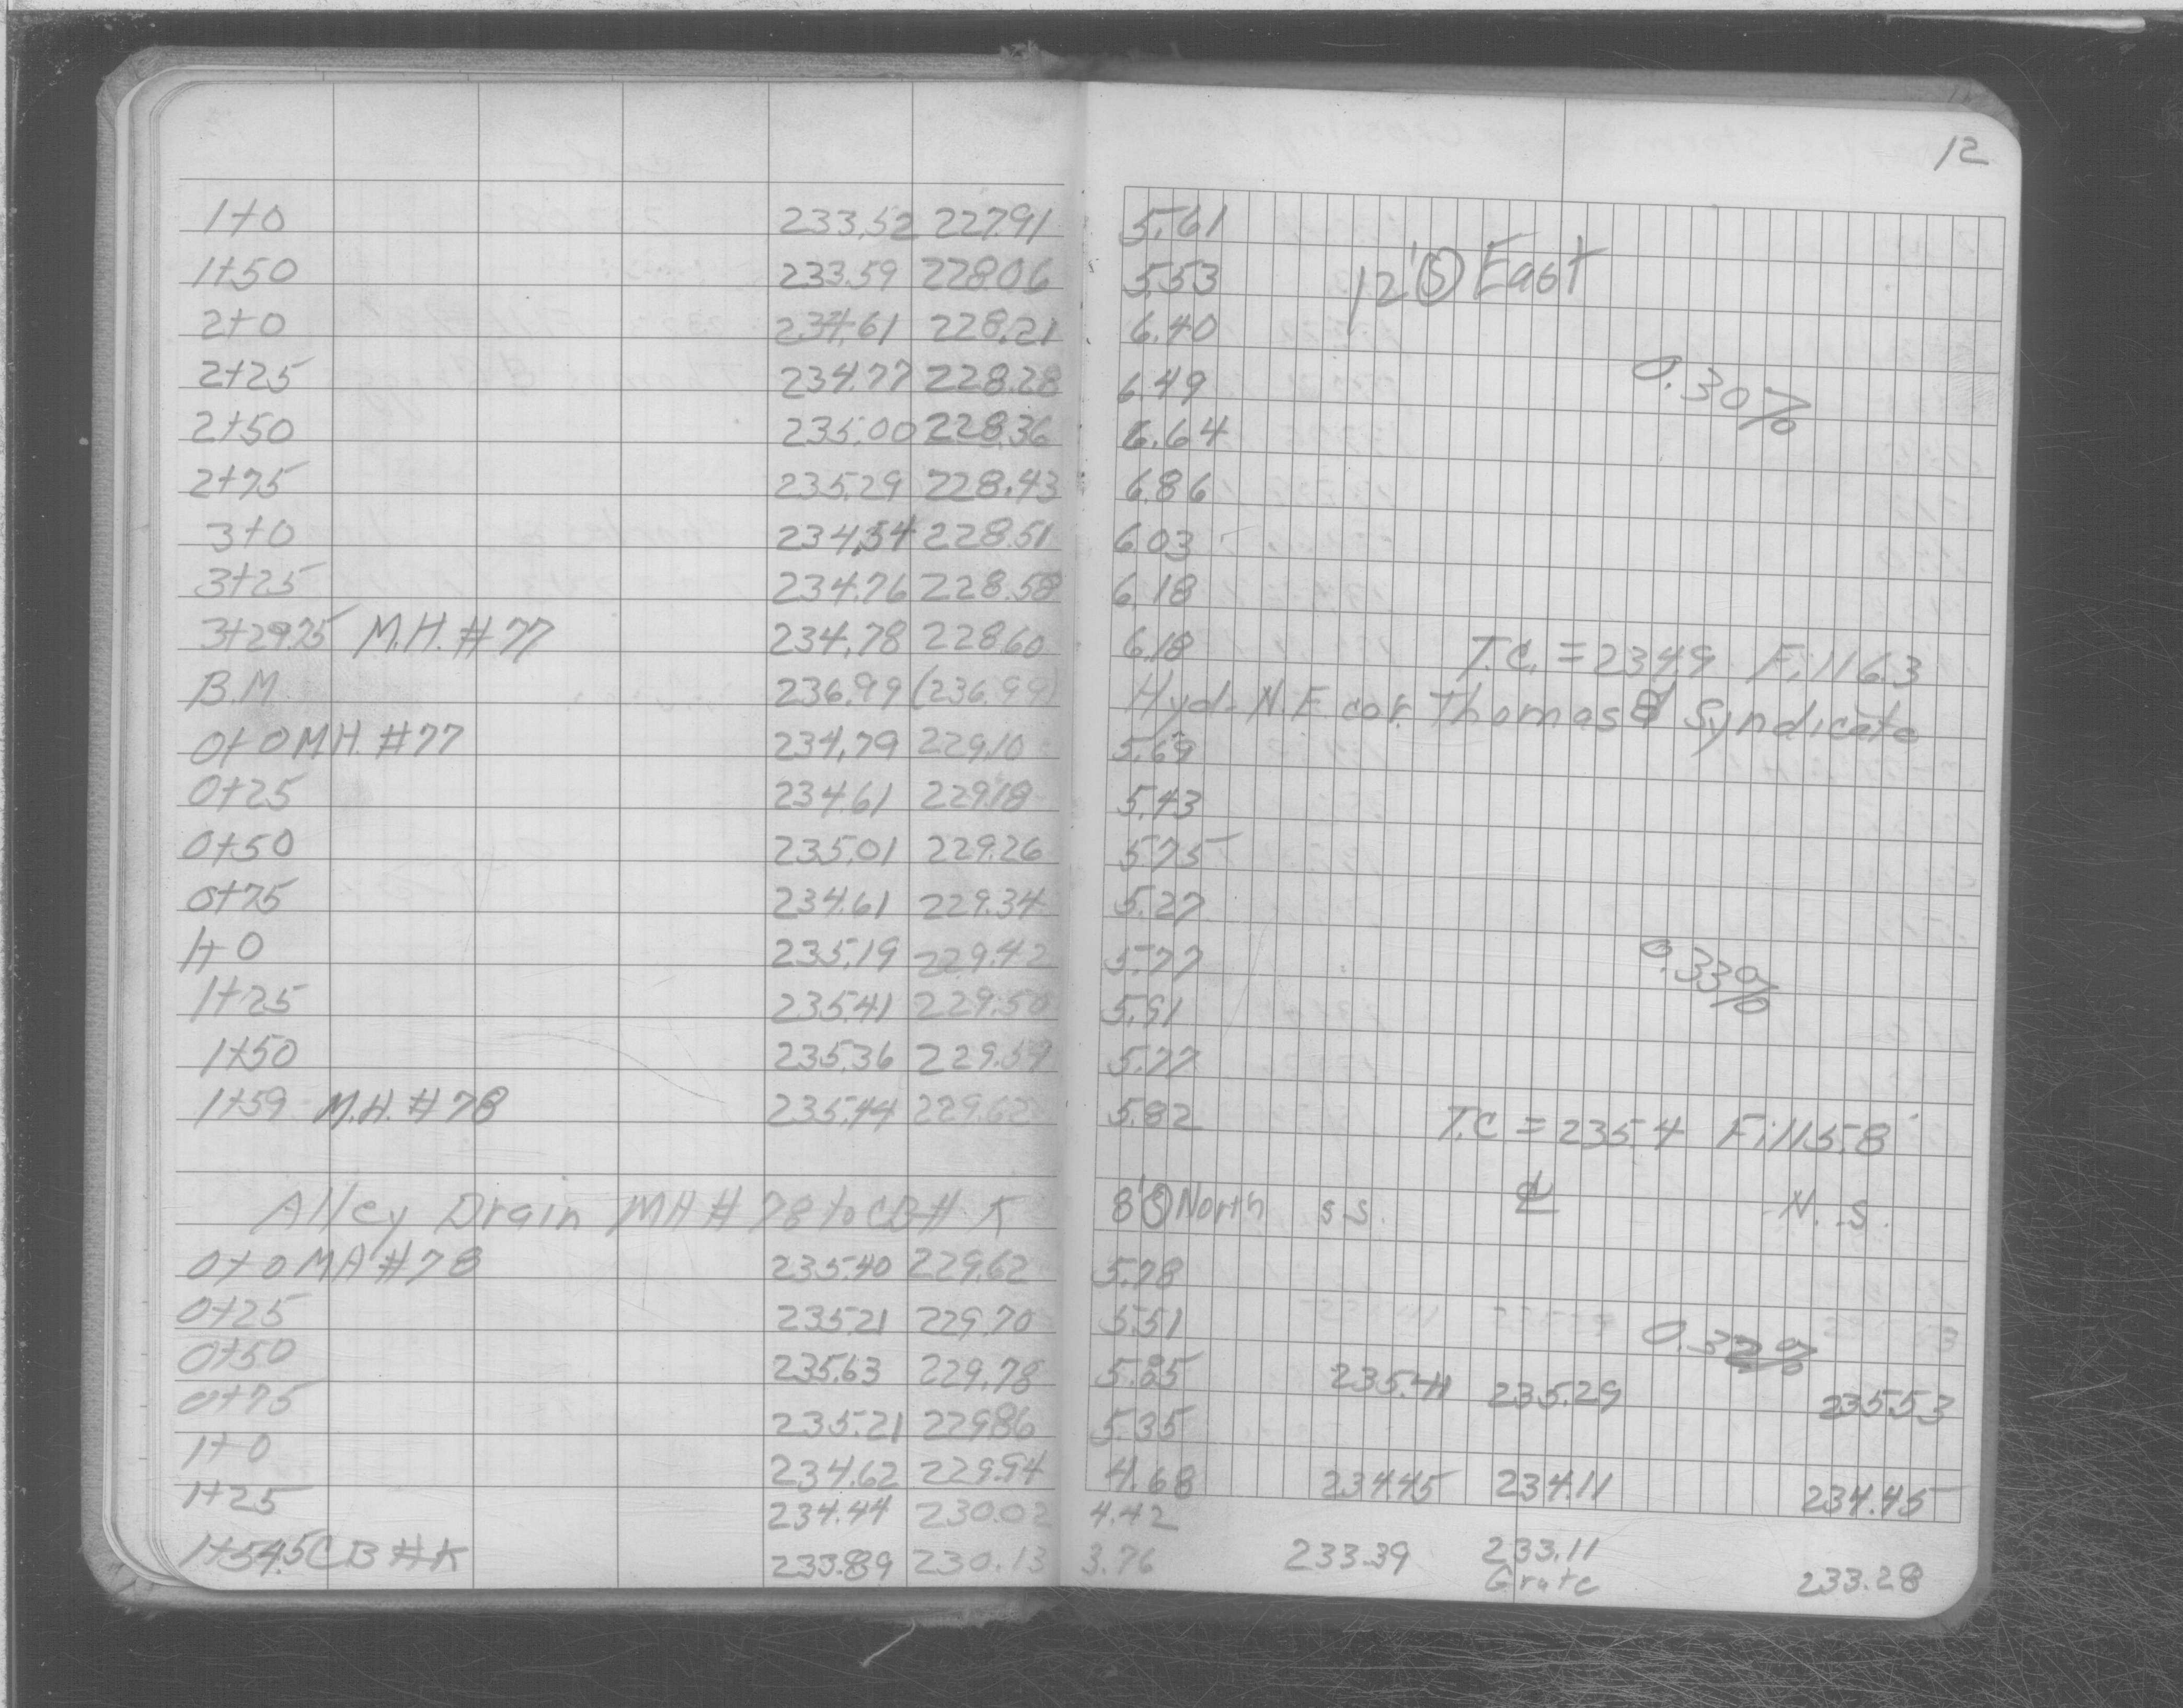 12
1+0 233.52 227.91 5.61
12' Ⓢ East
1+50 233.59 228.06 5.53
2+0 234.61 228.21 6.40
0.30%
2+25 234.77 228.28 6.49
2+50 235.00 228.36 6.64
2+75 235.29 228.43 6.86
3+0 234.54 228.51 6.03
3+25 234.76 228.58 6.18
3+29.75 M.H. #77 234.78 228.60 6.18 T.C. = 234.9 Fill 6.3
B.M. 236.99 (236.99) Hyd. N.E. cor. Thomas & Syndicate
0+0 M.H. #77 234.79 229.10 5.69
0+25 234.61 229.18 5.43
0+50 235.01 229.26 5.75
0+75 234.61 229.34 5.27
1+0 235.19 229.42 5.77
0.33%
1+25 235.41 229.50 5.91
1+50 235.36 229.59 5.77
1+59 M.H. #78 235.44 229.62 5.82 T.C = 235.4 Fill 5.8
Alley Drain MH # 78 to CB # K 8' Ⓢ North S.S. ℄ N. S.
0+0 MH #78 235.40 229.62 5.78
0+25 235.21 229.70 5.51
0.32%
0+50 235.63 229.78 5.85 235.41 235.29 235.53
0+75 235.21 229.86 5.35
1+0 234.62 229.94 4.68 234.45 234.11 234.45
1+25 234.44 230.02 4.42
1+54.5 CB #K 233.89 230.13 3.76 233.39 233.11 233.28
Grate